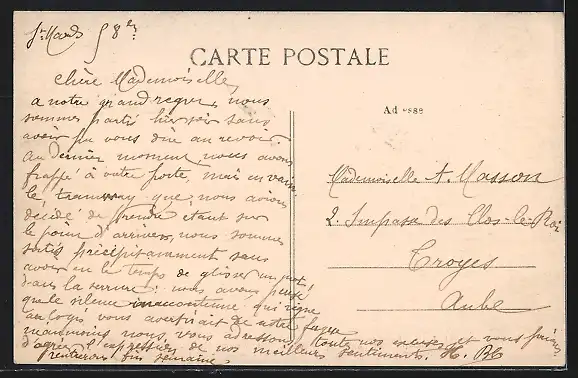 St Mards
CARTE POSTALE
Adresse
Chère Mademoiselle,
a notre grand regret, nous
sommes partis hier soir sans
avoir pu vous dire au revoir
au dernier moment nous avons
frappé à votre porte, mais en vain
le tramway que nous avions
décidé de prendre étant sur
le point d'arriver, nous sommes
sortis précipitamment sans
avoir eu le temps de glisser un mot
dans la serrure; nous avons pensé
que le silence inaccoutumé qui règne
au logis vous avertirait de notre fugue
néanmoins nous vous adressons toutes nos excuses et vous prions
d'agréer l'expression de nos meilleurs sentiments. H.
rentrerons fin semaine.
Mademoiselle A. Masson
2. Impasse des Clos-le-Roi
Troyes
Aube